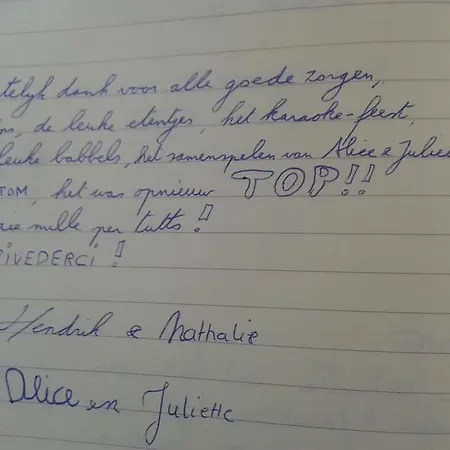 telijk dank voor alle goede zorgen,
de leuke etentjes, het karaoke-feest,
leuke babbels, het samenspelen van Alice & Juliette
TOM, het was opnieuw TOP!!
mille per tutto!
RIVEDERCI!
Hendrik & Nathalie
Alice en Juliette